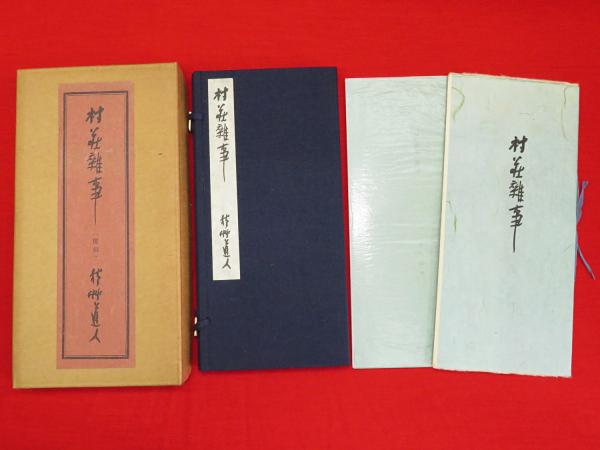 村荘雑事
(復刻)
秋艸道人
村荘雑事
秋艸道人
村荘雑事